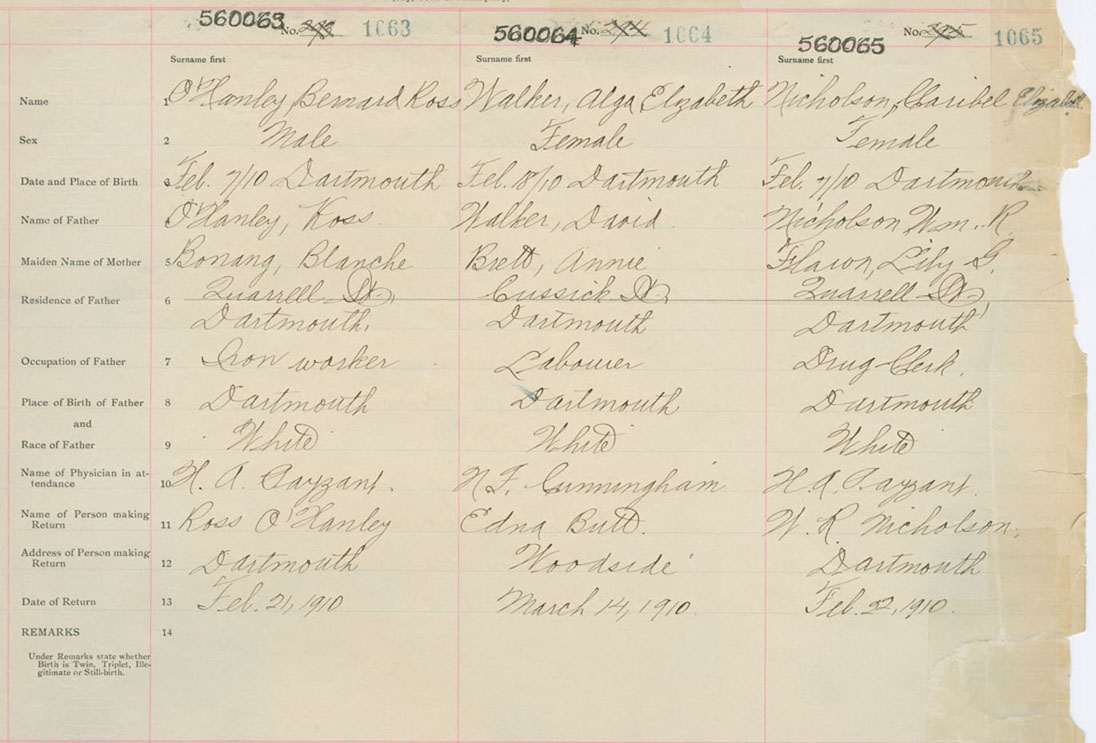 560063 No. 1063 560064 No. 1064 560065 No. 1065
Surname first Surname first Surname first
Name 1 O'Hanley, Bernard Ross Walker, Alga Elizabeth Nicholson, Claribel Elizabeth
Sex 2 Male Female Female
Date and Place of Birth 3 Feb. 7/10 Dartmouth Feb. 18/10 Dartmouth Feb. 7/10 Dartmouth
Name of Father 4 O'Hanley, Ross. Walker, David. Nicholson Wm. R.
Maiden Name of Mother 5 Bonang, Blanche Brett, Annie Flawn, Lily G.
Residence of Father 6 Quarrell St, Cussick St, Quarrell St,
Dartmouth. Dartmouth Dartmouth
Occupation of Father 7 Iron worker Labourer Drug-Clerk.
Place of Birth of Father 8 Dartmouth Dartmouth Dartmouth
and
Race of Father 9 White White White
Name of Physician in at-
tendance 10 H. A. Payzant. N. F. Cunningham H. A. Payzant.
Name of Person making
Return 11 Ross O'Hanley Edna Butt. W. R. Nicholson.
Address of Person making
Return 12 Dartmouth Woodside Dartmouth
Date of Return 13 Feb. 21, 1910. March 14, 1910. Feb. 22, 1910.
REMARKS 14
Under Remarks state whether
Birth is Twin, Triplet, Ille-
gitimate or Still-birth.